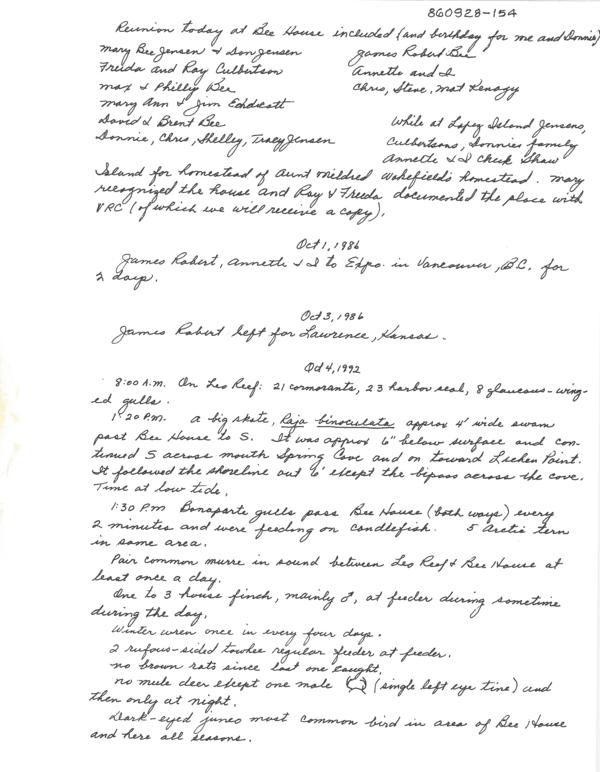 860928-154
Reunion today at Bee House included (and birthday for me and Donnie)
Mary Bee Jensen & Don Jensen
James Robert Bee
Freida and Ray Culbertson
Annette and I
Max & Phillip Bee
Chris, Steve, Mat Kenagy
Mary Ann & Jim Eddicott
David & Brent Bee
Donnie, Chris, Shelley, Tracy Jensen
While at Lopez Island Jensens,
Culbertsons, Donnies family
Annette & I check Shaw
Island for homestead of Aunt Mildred Wakefield's homestead. Mary
recognized the house and Ray & Freida documented the place with
VRC (of which we will receive a copy).
Oct 1, 1986
James Robert, Annette & I to Expo. in Vancouver, B.C. for
2 days.
Oct 3, 1986
James Robert left for Lawrence, Kansas.
Oct 4, 1992
8:00 A.M. On Leo Reef: 21 cormorants, 23 harbor seal, 8 glaucous-wing-
ed gulls.
1:20 P.M. a big skate, Raja binoculata approx 4' wide swam
past Bee House to S. It was approx 6" below surface and con-
tinued S across mouth Spring Cove and on toward Lichen Point.
It followed the shoreline out 6' except the bypass across the cove.
Time at low tide.
1:30 P.M Bonaparte gulls pass Bee House (both ways) every
2 minutes and were feeding on candlefish. 5 Arctic tern
in same area.
Pair common murre in sound between Leo Reef & Bee House at
least once a day.
One to 3 house finch, mainly ♂, at feeder during sometime
during the day.
Winter wren once in every four days.
2 rufous-sided towhee regular feeder at feeder.
no brown rats since last one caught.
no mule deer except one male (single left eye tine) and
then only at night.
Dark-eyed junco most common bird in area of Bee House
and here all seasons.